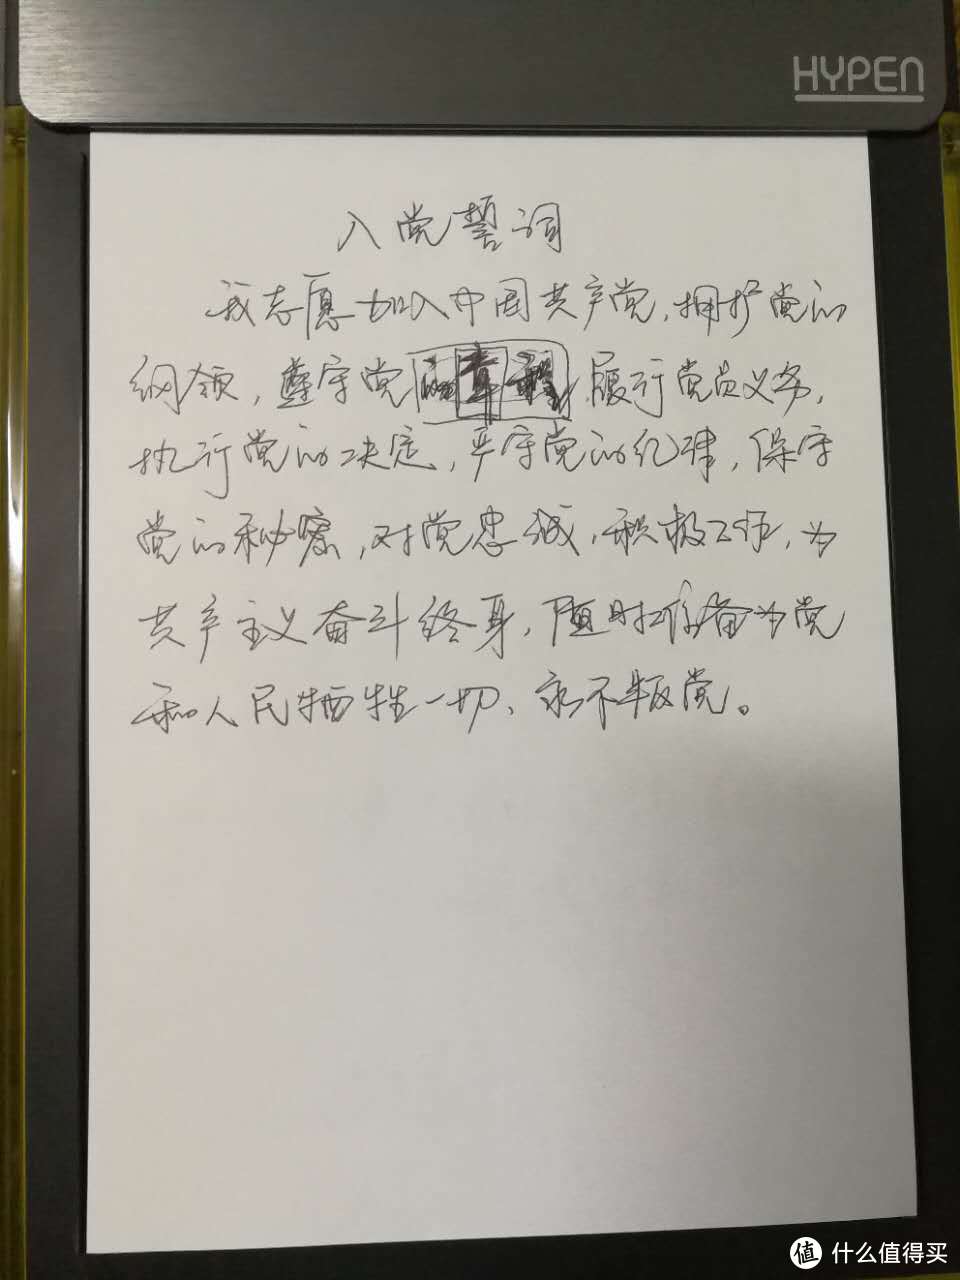 HYPEN
入党誓词
我志愿加入中国共产党,拥护党的
纲领,遵守党的章程,履行党员义务,
执行党的决定,严守党的纪律,保守
党的秘密,对党忠诚,积极工作,为
共产主义奋斗终身,随时准备为党
和人民牺牲一切、永不叛党。
值 什么值得买